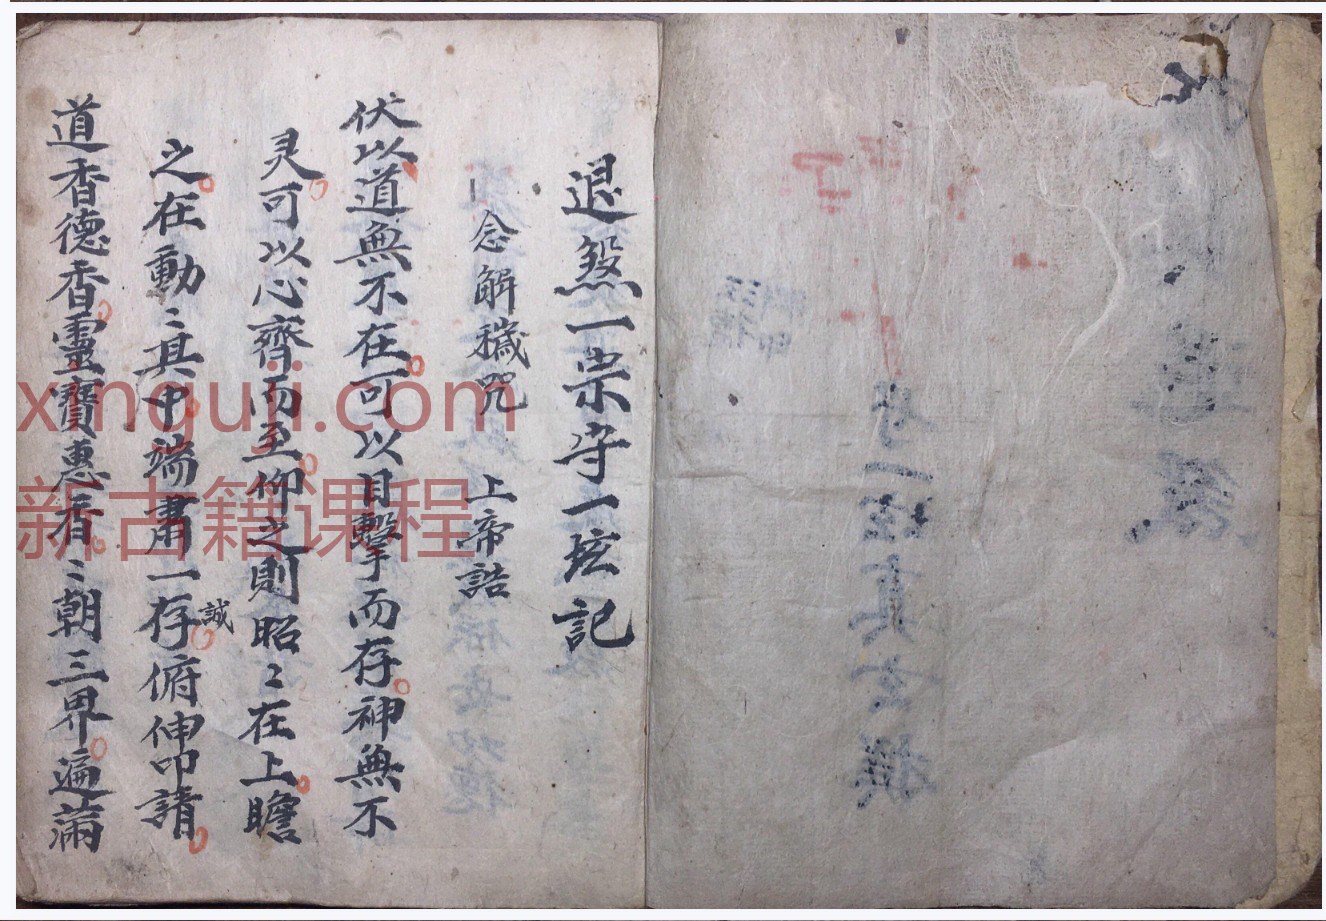 退煞一宗守一玹記
念解穢咒 上帝誥
伏以道無不在可以目擊而存神無不
灵可以心齊而至仰之則昭〻在上瞻
之在動〻其中端肅一誠存俯伸叩請
道香德香靈寶惠香〻朝三界遍滿
xinguji.com
新古籍课程